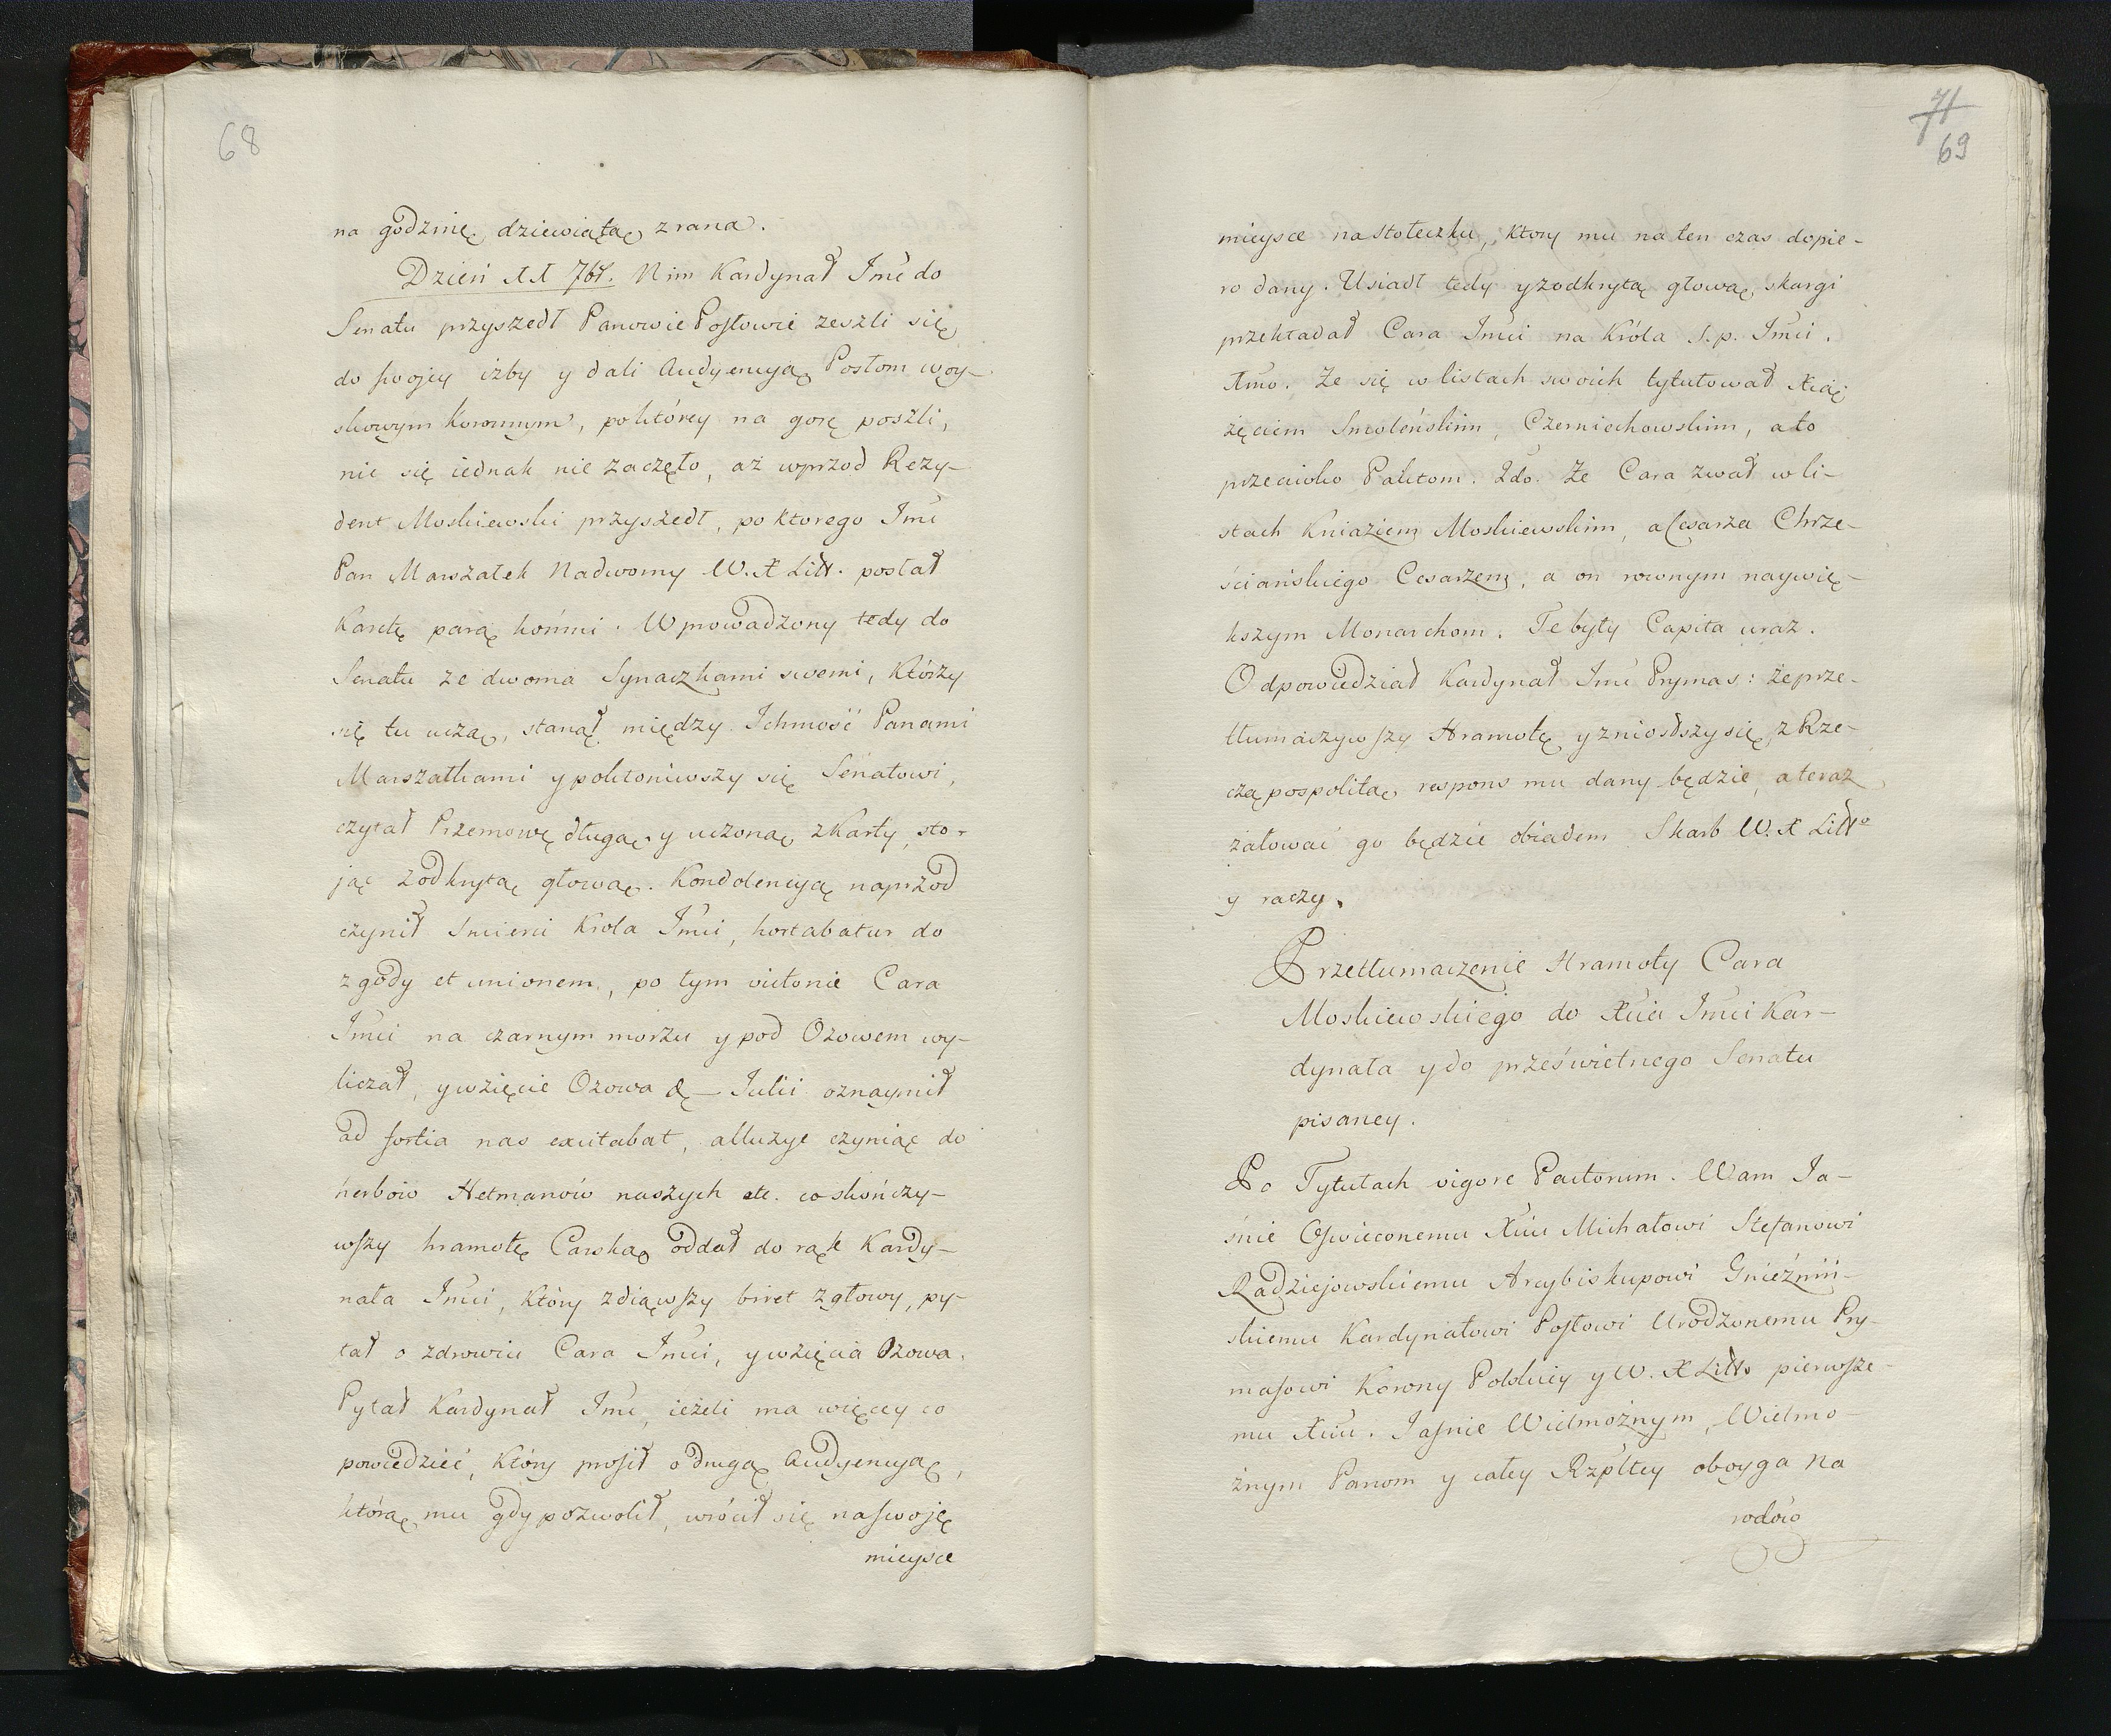 68
na godzinię dziewiątą z rana.
Dzień XX 7br. Nim Kardynał Jmć do
Senatu przyszedł Panowie Posłowie zeszli się
do swojey izby y dali Audyencyą Posłom woy-
skowym koronnym, po którey na gorę poszli,
nic się iednak nie zaczęło, aż wprzod Rezy-
dent Moskiewski przyszedł, po ktorego Jmć
Pan Marszałek Nadworny W. X Litt. posłał
Karetę parą końmi. Wprowadzony tedy do
Senatu ze dwoma Synaczkami swemi, Którzy
się tu uczą, stanął między Ichmość Panami
Marszałkami y pokłoniwszy się Senatowi,
czytał Przemowę długą y uczoną z Karty, sto-
jąc z odkrytą głową. Kondolencyą naprzod
czynił Smierci Krola Jmci, hortabatur do
zgody et unionem, po tym victorie Cara
Jmci na czarnym morzu y pod Ozowem wy-
liczał, y wzięcie Ozowa d — Julii oznaymił
ad fortia nas excitabat, alluzye czyniąc do
herbow Hetmanów naszych etc. co skończy-
wszy hramotę Carską oddał do rąk Kardy-
nała Jmci, Który zdiąwszy biret z głowy, py-
tał o zdrowiu Cara Jmci, y wzięcia Ozowa.
Pytał Kardynał Jmć, ieżeli ma więcey co
powiedzieć, Który prosił o drugą Audyencyą,
którą mu gdy pozwolił, wrócił się na swoję
mieysce
71
69
mieysce na stołeczku, Ktory mu na ten czas dopie-
ro dany. Usiadł tedy y z odkrytą głową, skargi
przekładał Cara Jmci na Króla s. p. Jmci.
Xmo. Że się w listach swoich tytułował Xią-
żęciem Smoleńskim, Czerniechowskim, a to
przeciwko Paktom. 2do. Że Cara zwał w li-
stach Kniaziem Moskiewskim, a Cesarza Chrze-
ściańskiego Cesarzem, a on rownym naywię-
kszym Monarchom. Te były Capita uraz.
Odpowiedział Kardynał Jmć Prymas: że prze-
tłumaczywszy Hramotę y zniosłszy się z Rze-
cząpospolitą, respons mu dany będzie, a teraz
żałować go będzie obiadem Skarb W. X Litto
y raczy.
Przetłumaczenie Hramoty Cara
Moskiewskiego do Xcia Jmci Kar-
dynała y do prześwietnego Senatu
pisaney.
Po Tytułach vigore Pactorum. Wam Ja-
śnie Oświeconemu Xciu Michałowi Stefanowi
Radziejowskiemu Arcybiskupowi Gnieźniń-
skiemu Kardynałowi Posłowi Urodzonemu Pry-
masowi Korony Polskiey y W. X Litto pierwsze-
mu Xciu. Jaśnie Wielmożnym, Wielmo-
żnym Panom y całey Rzpltey oboyga Na
rodów